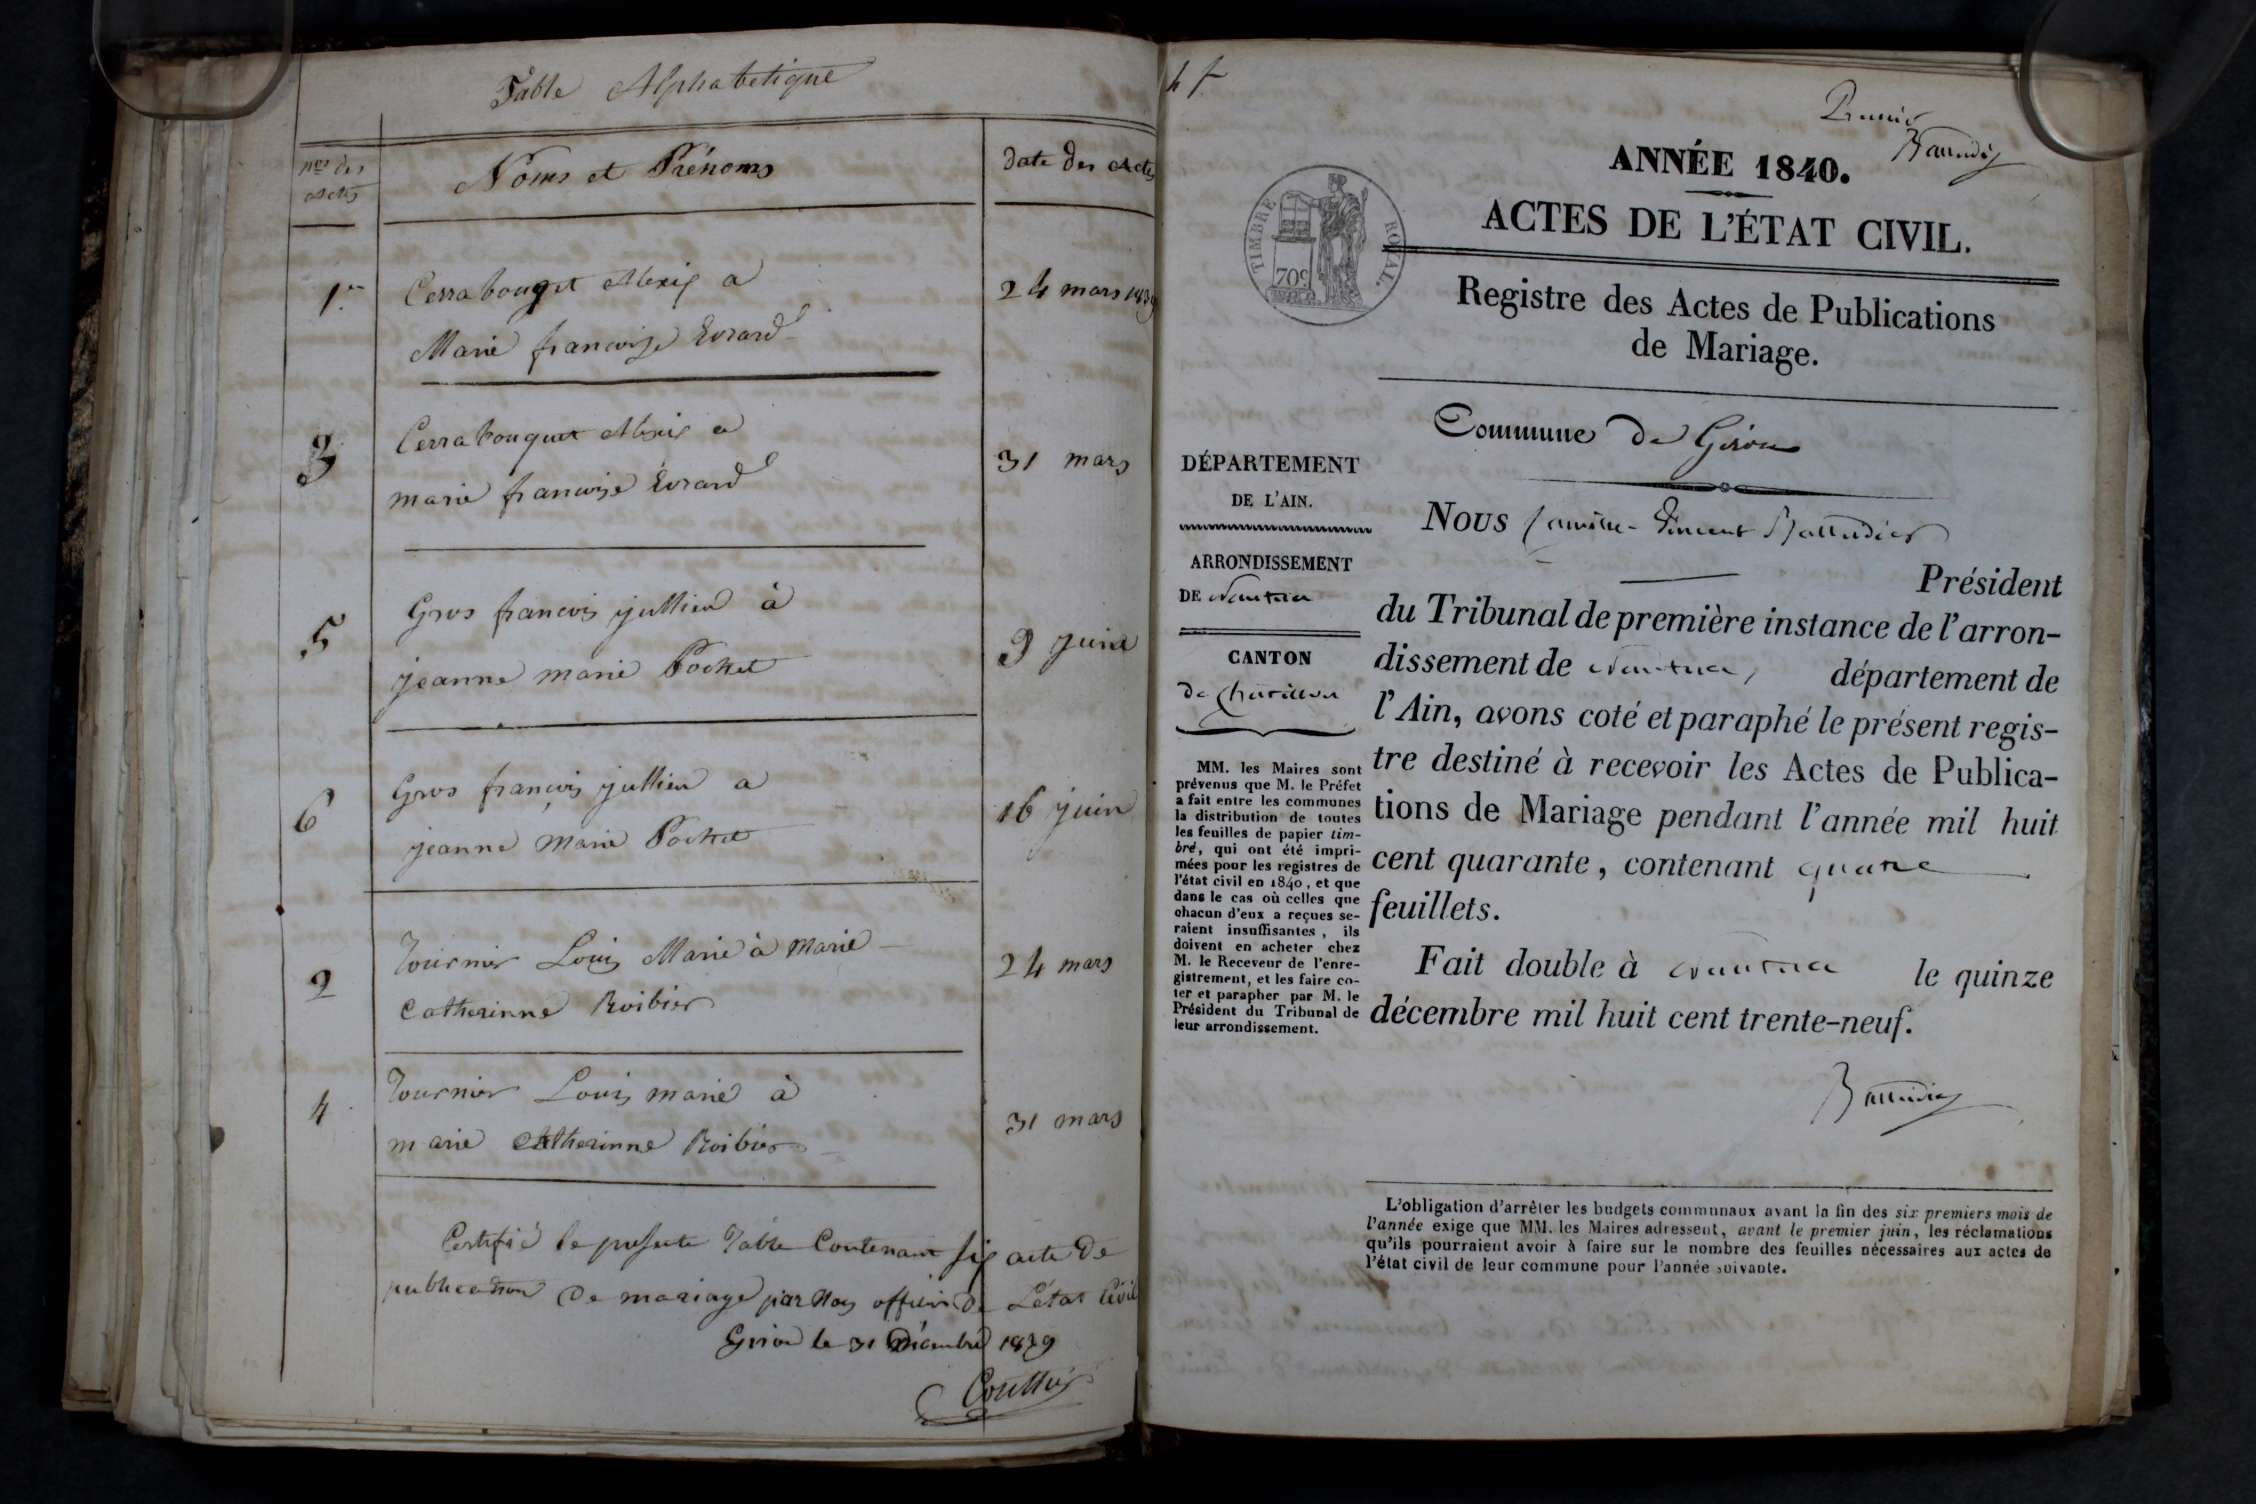 Table Alphabetique
nos des
actes
Noms et Prénoms
date des Actes
1er
Cerrabouget Alexis a
24 mars 1839
Marie françoise Evrard
3
Cerrabouquet Alexis a
marie françoise Evrard
31 mars
5
Gros francois jullien à
jeanne marie Pochet
9 juin
6
Gros françois jullien a
jeanne marie Pochet
16 juin
2
Tournier Louis Marie à Marie
Catherinne Roibier
24 mars
4
Tournier Louis marie à
marie Catherinne Roibier
31 mars
Certifié le presente Table Contenant six acte de
publication de mariage par Nous officier de L'état Civil
Giron le 31 Décembre 1839
Premier
ANNÉE 1840.
ACTES DE L'ÉTAT CIVIL.
TIMBRE ROYAL.
70c
Registre des Actes de Publications
de Mariage.
Commune de Giron
DÉPARTEMENT
DE L'AIN.
ARRONDISSEMENT
DE Nantua
CANTON
de Châtillon
MM. les Maires sont
prévenus que M. le Préfet
a fait entre les communes
la distribution de toutes
les feuilles de papier tim-
bré, qui ont été impri-
mées pour les registres de
l'état civil en 1840, et que
dans le cas où celles que
chacun d'eux a reçues se-
raient insuffisantes, ils
doivent en acheter chez
M. le Receveur de l'enre-
gistrement, et les faire co-
ter et parapher par M. le
Président du Tribunal de
leur arrondissement.
Nous Vincent
Président
du Tribunal de première instance de l'arron-
dissement de Nantua, département de
l'Ain, avons coté et paraphé le présent regis-
tre destiné à recevoir les Actes de Publica-
tions de Mariage pendant l'année mil huit
cent quarante, contenant quatre
feuillets.
Fait double à Nantua le quinze
décembre mil huit cent trente-neuf.
L'obligation d'arrêter les budgets communaux avant la fin des six premiers mois de
l'année exige que MM. les Maires adressent, avant le premier juin, les réclamations
qu'ils pourraient avoir à faire sur le nombre des feuilles nécessaires aux actes de
l'état civil de leur commune pour l'année suivante.